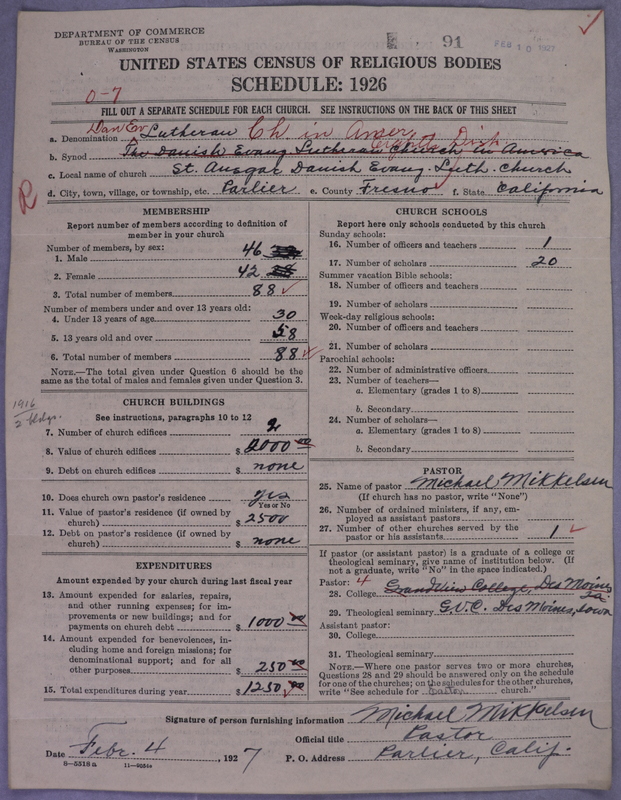 DEPARTMENT OF COMMERCE
BUREAU OF THE CENSUS
WASHINGTON
91
FEB 10 1927
UNITED STATES CENSUS OF RELIGIOUS BODIES
SCHEDULE: 1926
0-7
FILL OUT A SEPARATE SCHEDULE FOR EACH CHURCH. SEE INSTRUCTIONS ON THE BACK OF THIS SHEET
a. Denomination Dan Ev Lutheran Ch in Amer.
b. Synod The Danish Evang Lutheran Church in America
c. Local name of church St. Ansgar Danish Evang. Luth. Church
d. City, town, village, or township, etc. Parlier e. County Fresno f. State California
R
MEMBERSHIP
Report number of members according to definition of member in your church
Number of members, by sex:
1. Male 46
2. Female 42
3. Total number of members 88
Number of members under and over 13 years old:
4. Under 13 years of age 30
5. 13 years old and over 58
6. Total number of members 88
NOTE.—The total given under Question 6 should be the same as the total of males and females given under Question 3.
1916
2 bldgs.
CHURCH BUILDINGS
See instructions, paragraphs 10 to 12
7. Number of church edifices 2
8. Value of church edifices $ 2000 00
9. Debt on church edifices $ none
10. Does church own pastor's residence yes
Yes or No
11. Value of pastor's residence (if owned by church) $ 2500
12. Debt on pastor's residence (if owned by church) $ none
EXPENDITURES
Amount expended by your church during last fiscal year
13. Amount expended for salaries, repairs, and other running expenses; for improvements or new buildings; and for payments on church debt $ 1000 00
14. Amount expended for benevolences, including home and foreign missions; for denominational support; and for all other purposes $ 250 00
15. Total expenditures during year $ 1250 00
CHURCH SCHOOLS
Report here only schools conducted by this church
Sunday schools:
16. Number of officers and teachers 1
17. Number of scholars 20
Summer vacation Bible schools:
18. Number of officers and teachers
19. Number of scholars
Week-day religious schools:
20. Number of officers and teachers
21. Number of scholars
Parochial schools:
22. Number of administrative officers
23. Number of teachers—
a. Elementary (grades 1 to 8)
b. Secondary
24. Number of scholars—
a. Elementary (grades 1 to 8)
b. Secondary
PASTOR
25. Name of pastor Michael Mikkelsen
(If church has no pastor, write "None")
26. Number of ordained ministers, if any, employed as assistant pastors
27. Number of other churches served by the pastor or his assistants 1
If pastor (or assistant pastor) is a graduate of a college or theological seminary, give name of institution below. (If not a graduate, write "No" in the space indicated.)
Pastor: 4
28. College Grandview College, Des Moines Ia.
29. Theological seminary G.V.C. Des Moines, Iowa
Assistant pastor:
30. College
31. Theological seminary
NOTE.—Where one pastor serves two or more churches, Questions 28 and 29 should be answered only on the schedule for one of the churches; on the schedules for the other churches, write "See schedule for church."
Signature of person furnishing information Michael Mikkelsen
Official title Pastor
Date Febr. 4, 1927 P. O. Address Parlier, Calif.
8-5518a